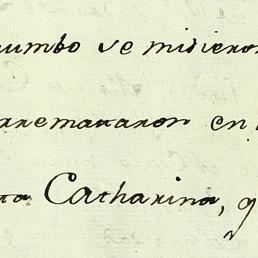 rumbo se midieron
rremataron en
ta Catharina, q